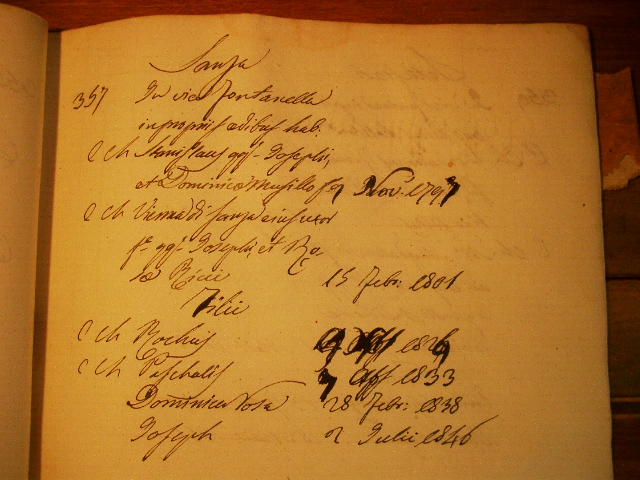 Sanza
357 In via Fontanella
in propriis ædibus hab.
C Ch Stanislaus qq.- Josephi,
et Dominica Musillo f. 7 Nov: 1797
C Ch Vienna di Sanza ejus uxor
f.- qq.- Josephi, et Ro
sæ Ricci 15 Febr: 1801
Filii
C Ch Rochus 1829
C Ch Paschalis 7 1833
Dominica Rosa 28 Febr: 1838
Joseph 2 Julii 1846